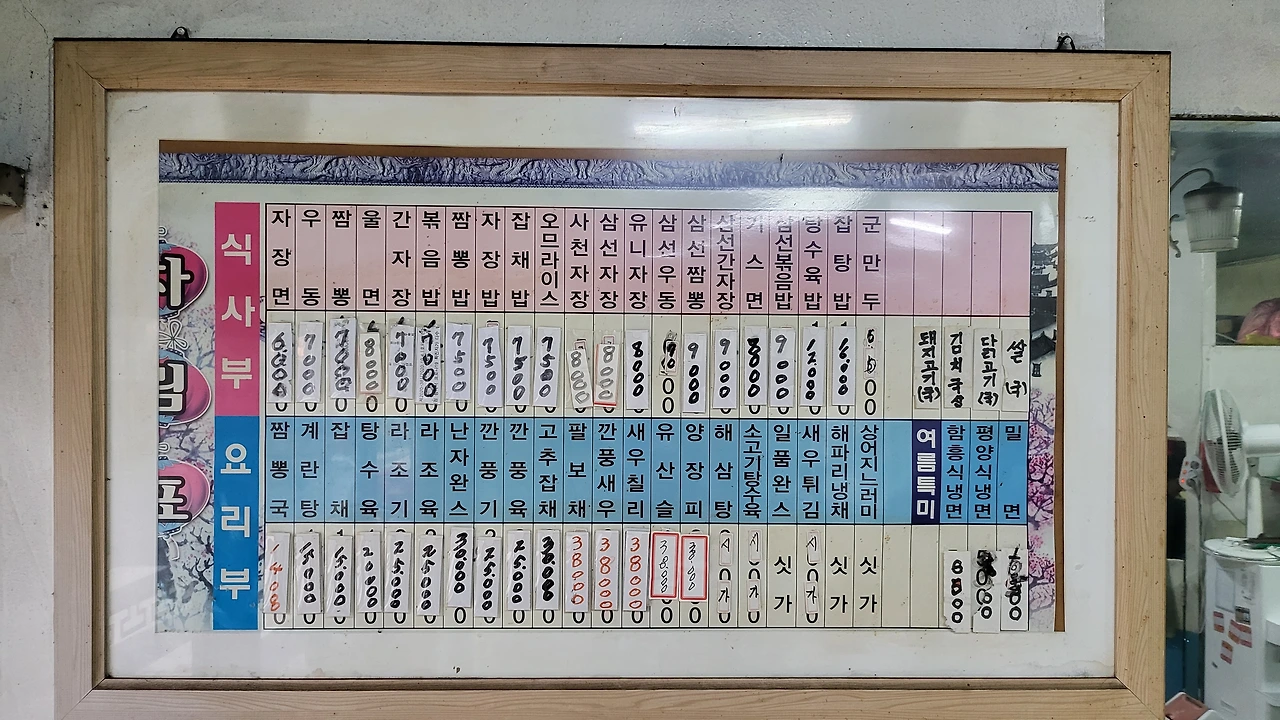 차
림
표
식사부
자장면 6000
우동 7000
짬뽕 7000
울면 8000
간자장 7000
볶음밥 7000
짬뽕밥 7500
자장밥 7500
잡채밥 7500
오므라이스 7500
사천자장 8000
삼선자장 8000
유니자장 8000
삼선우동
삼선짬뽕 9000
삼선간자장 9000
기스면 8000
삼선볶음밥 9000
탕수육밥 12000
잡탕밥
군만두
돼지고기(국)
김치 국산
닭고기(국)
쌀 (국)
요리부
짬뽕국
계란탕
잡채 15000
탕수육 20000
라조기 25000
라조육 25000
난자완스 30000
깐풍기 25000
깐풍육 25000
고추잡채 30000
팔보채 38000
깐풍새우 38000
새우칠리 38000
유산슬 38000
양장피
해삼탕 시가
소고기탕수육 시가
일품완스 싯가
새우튀김 시가
해파리냉채 싯가
상어지느러미 싯가
여름특미
함흥식냉면
평양식냉면
밀면